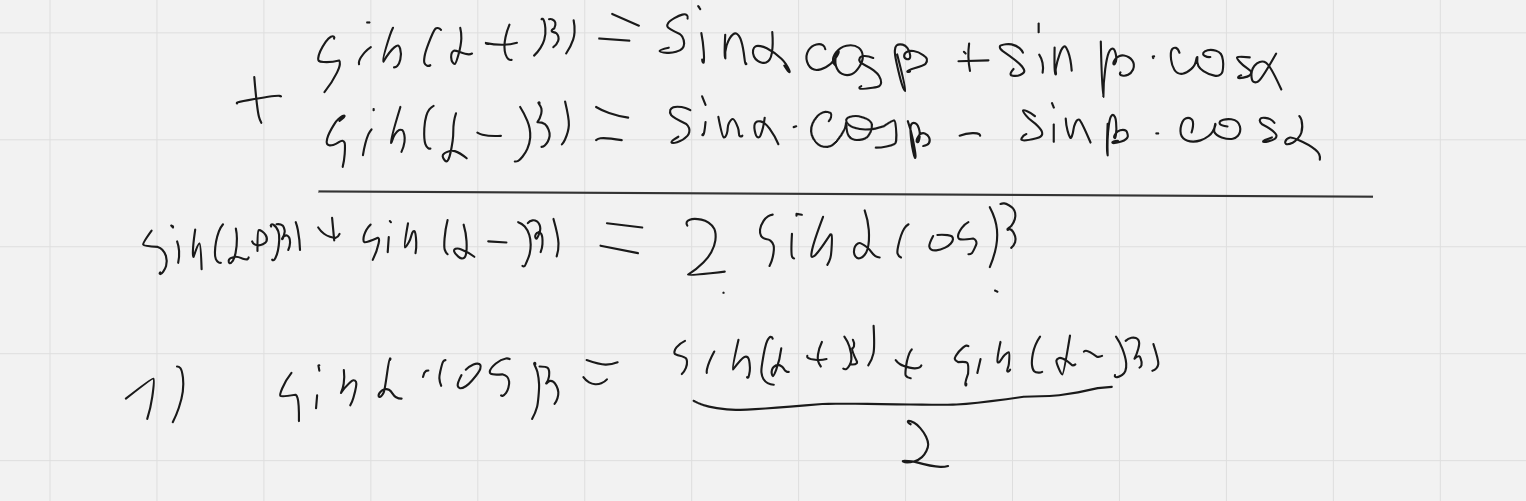 sin(α+β) = sinα cosβ + sinβ·cosα
+
sin(α-β) = sinα·cosβ - sinβ·cosα
sin(α+β) + sin(α-β) = 2 sinα cosβ
1) sinα·cosβ = (sin(α+β) + sin(α-β))/2